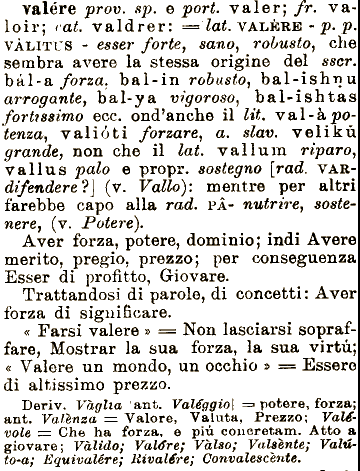 valére prov. sp. e port. valer; fr. va-
loir; cat. valdrer: = lat. VALÈRE - p. p.
VÀLITUS - esser forte, sano, robusto, che
sembra avere la stessa origine del sscr.
bál-a forza, bal-in robusto, bal-ishṇu
arrogante, bal-ya vigoroso, bal-ishtas
fortissimo ecc. ond'anche il lit. val-à po-
tenza, valióti forzare, a. slav. velikŭ
grande, non che il lat. vallum riparo,
vallus palo e propr. sostegno [rad. VAR-
difendere?] (v. Vallo): mentre per altri
farebbe capo alla rad. PÂ- nutrire, soste-
nere, (v. Potere).
Aver forza, potere, dominio; indi Avere
merito, pregio, prezzo; per conseguenza
Esser di profitto, Giovare.
Trattandosi di parole, di concetti: Aver
forza di significare.
« Farsi valere » = Non lasciarsi sopraf-
fare, Mostrar la sua forza, la sua virtú;
« Valere un mondo, un occhio » = Essere
di altissimo prezzo.
Deriv. Vàglia [ant. Valéggio] = potere, forza;
ant. Valènza = Valore, Valuta, Prezzo; Valé-
vole = Che ha forza, e piú concretam. Atto a
giovare; Vàlido; Valóre; Vàlso; Valsènte; Valú-
to-a; Equivalére; Rivalére; Convalescènte.